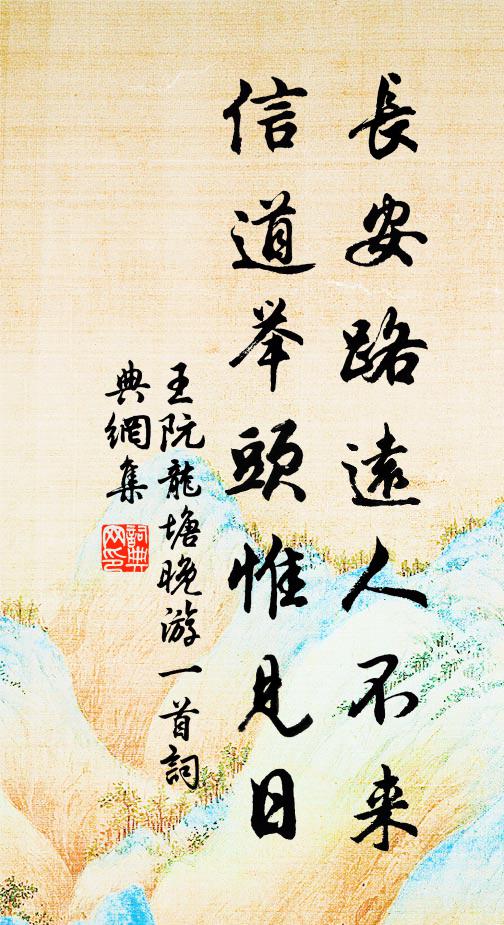 長安路遠人不来
信道举頭惟見日
王阮龍塘晚游一首詞
典網集
詞典